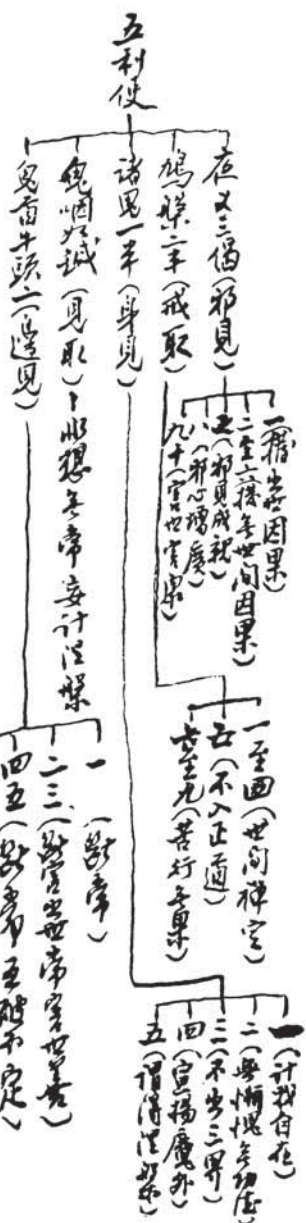 五利使
夜叉三偈（邪見）
一（撥出世因果）
二至六（撥無世間因果）
七（邪見成就）
八（邪心增廣）
九十（害世害衆）
鳩槃二半（戒取）
一至四（世間禪定）
五（不入正道）
六至九（苦行無果）
諸鬼一半（身見）
一（計我自在）
二（無慚愧無功德）
三（不出三界）
四（宣揚魔外）
五（謂得涅槃）
鬼咽如針（見取）非想無常妄計涅槃
鬼首牛頭二（邊見）
一（斷常）
二三（斷害出世常害世善）
四五（斷常互破不定）